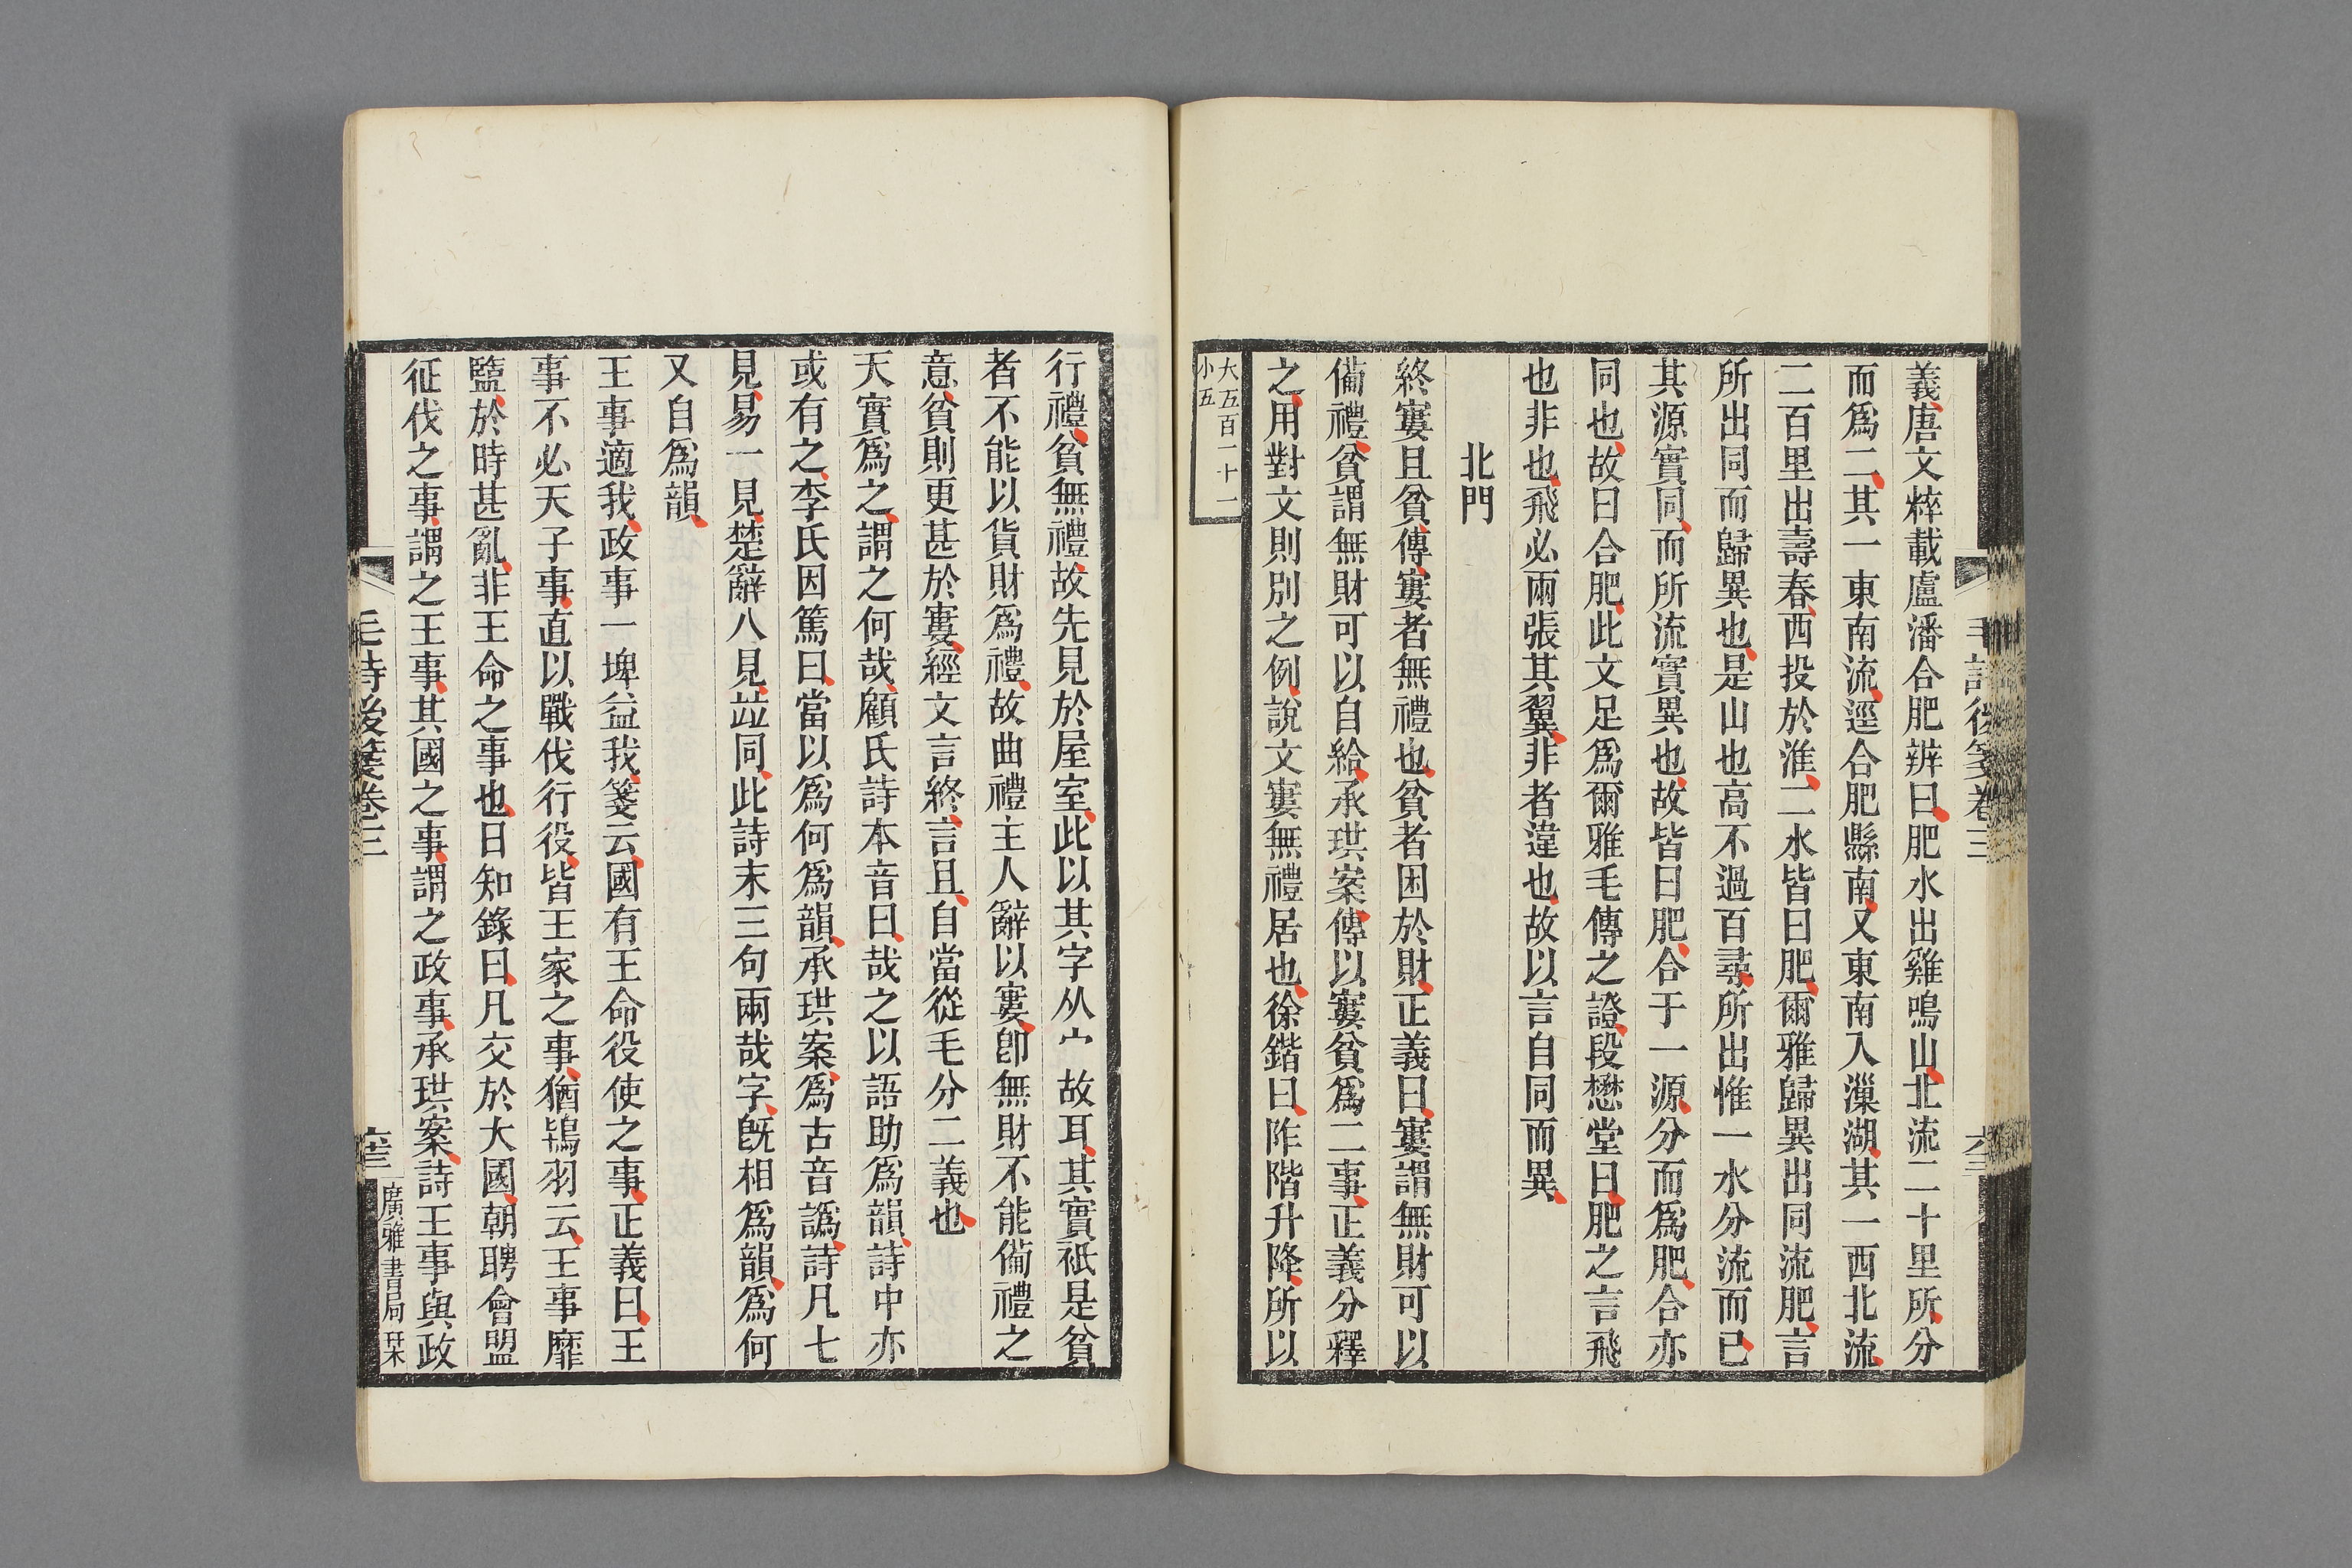 義唐文粹載盧潘合肥辨曰肥水出雞鳴山北流二十里所分
而爲二其一東南流逕合肥縣南又東南入漅湖其一西北流
二百里出壽春西投於淮二水皆曰肥爾雅歸異出同流肥言
所出同而歸異也是山也高不過百尋所出惟一水分流而已
其源實同而所流實異也故皆曰肥合于一源分而爲肥合亦
同也故曰合肥此文足爲爾雅毛傳之證段懋堂曰肥之言飛
也非也飛必兩張其翼非者違也故以言自同而異
北門
終寠且貧傳寠者無禮也貧者困於財正義曰寠謂無財可以
備禮貧謂無財可以自給承珙案傳以寠貧爲二事正義分釋
之用對文則別之例說文寠無禮居也徐鍇曰阼階升降所以
大五百一十一
小五
毛詩後箋卷三
行禮貧無禮故先見於屋室此以其字从宀故耳其實祇是貧
者不能以貨財爲禮故曲禮主人辭以寠卽無財不能備禮之
意貧則更甚於寠經文言終言且自當從毛分二義也
天實爲之謂之何哉顧氏詩本音曰哉之以語助爲韻詩中亦
或有之李氏因篤曰當以爲何爲韻承珙案爲古音譌詩凡七
見易一見楚辭八見竝同此詩末三句兩哉字旣相爲韻爲何
又自爲韻
王事適我政事一埤益我箋云國有王命役使之事正義曰王
事不必天子事直以戰伐行役皆王家之事猶鴇羽云王事靡
盬於時甚亂非王命之事也日知錄曰凡交於大國朝聘會盟
征伐之事謂之王事其國之事謂之政事承珙案詩王事與政
毛詩後箋卷三
廣雅書局栞